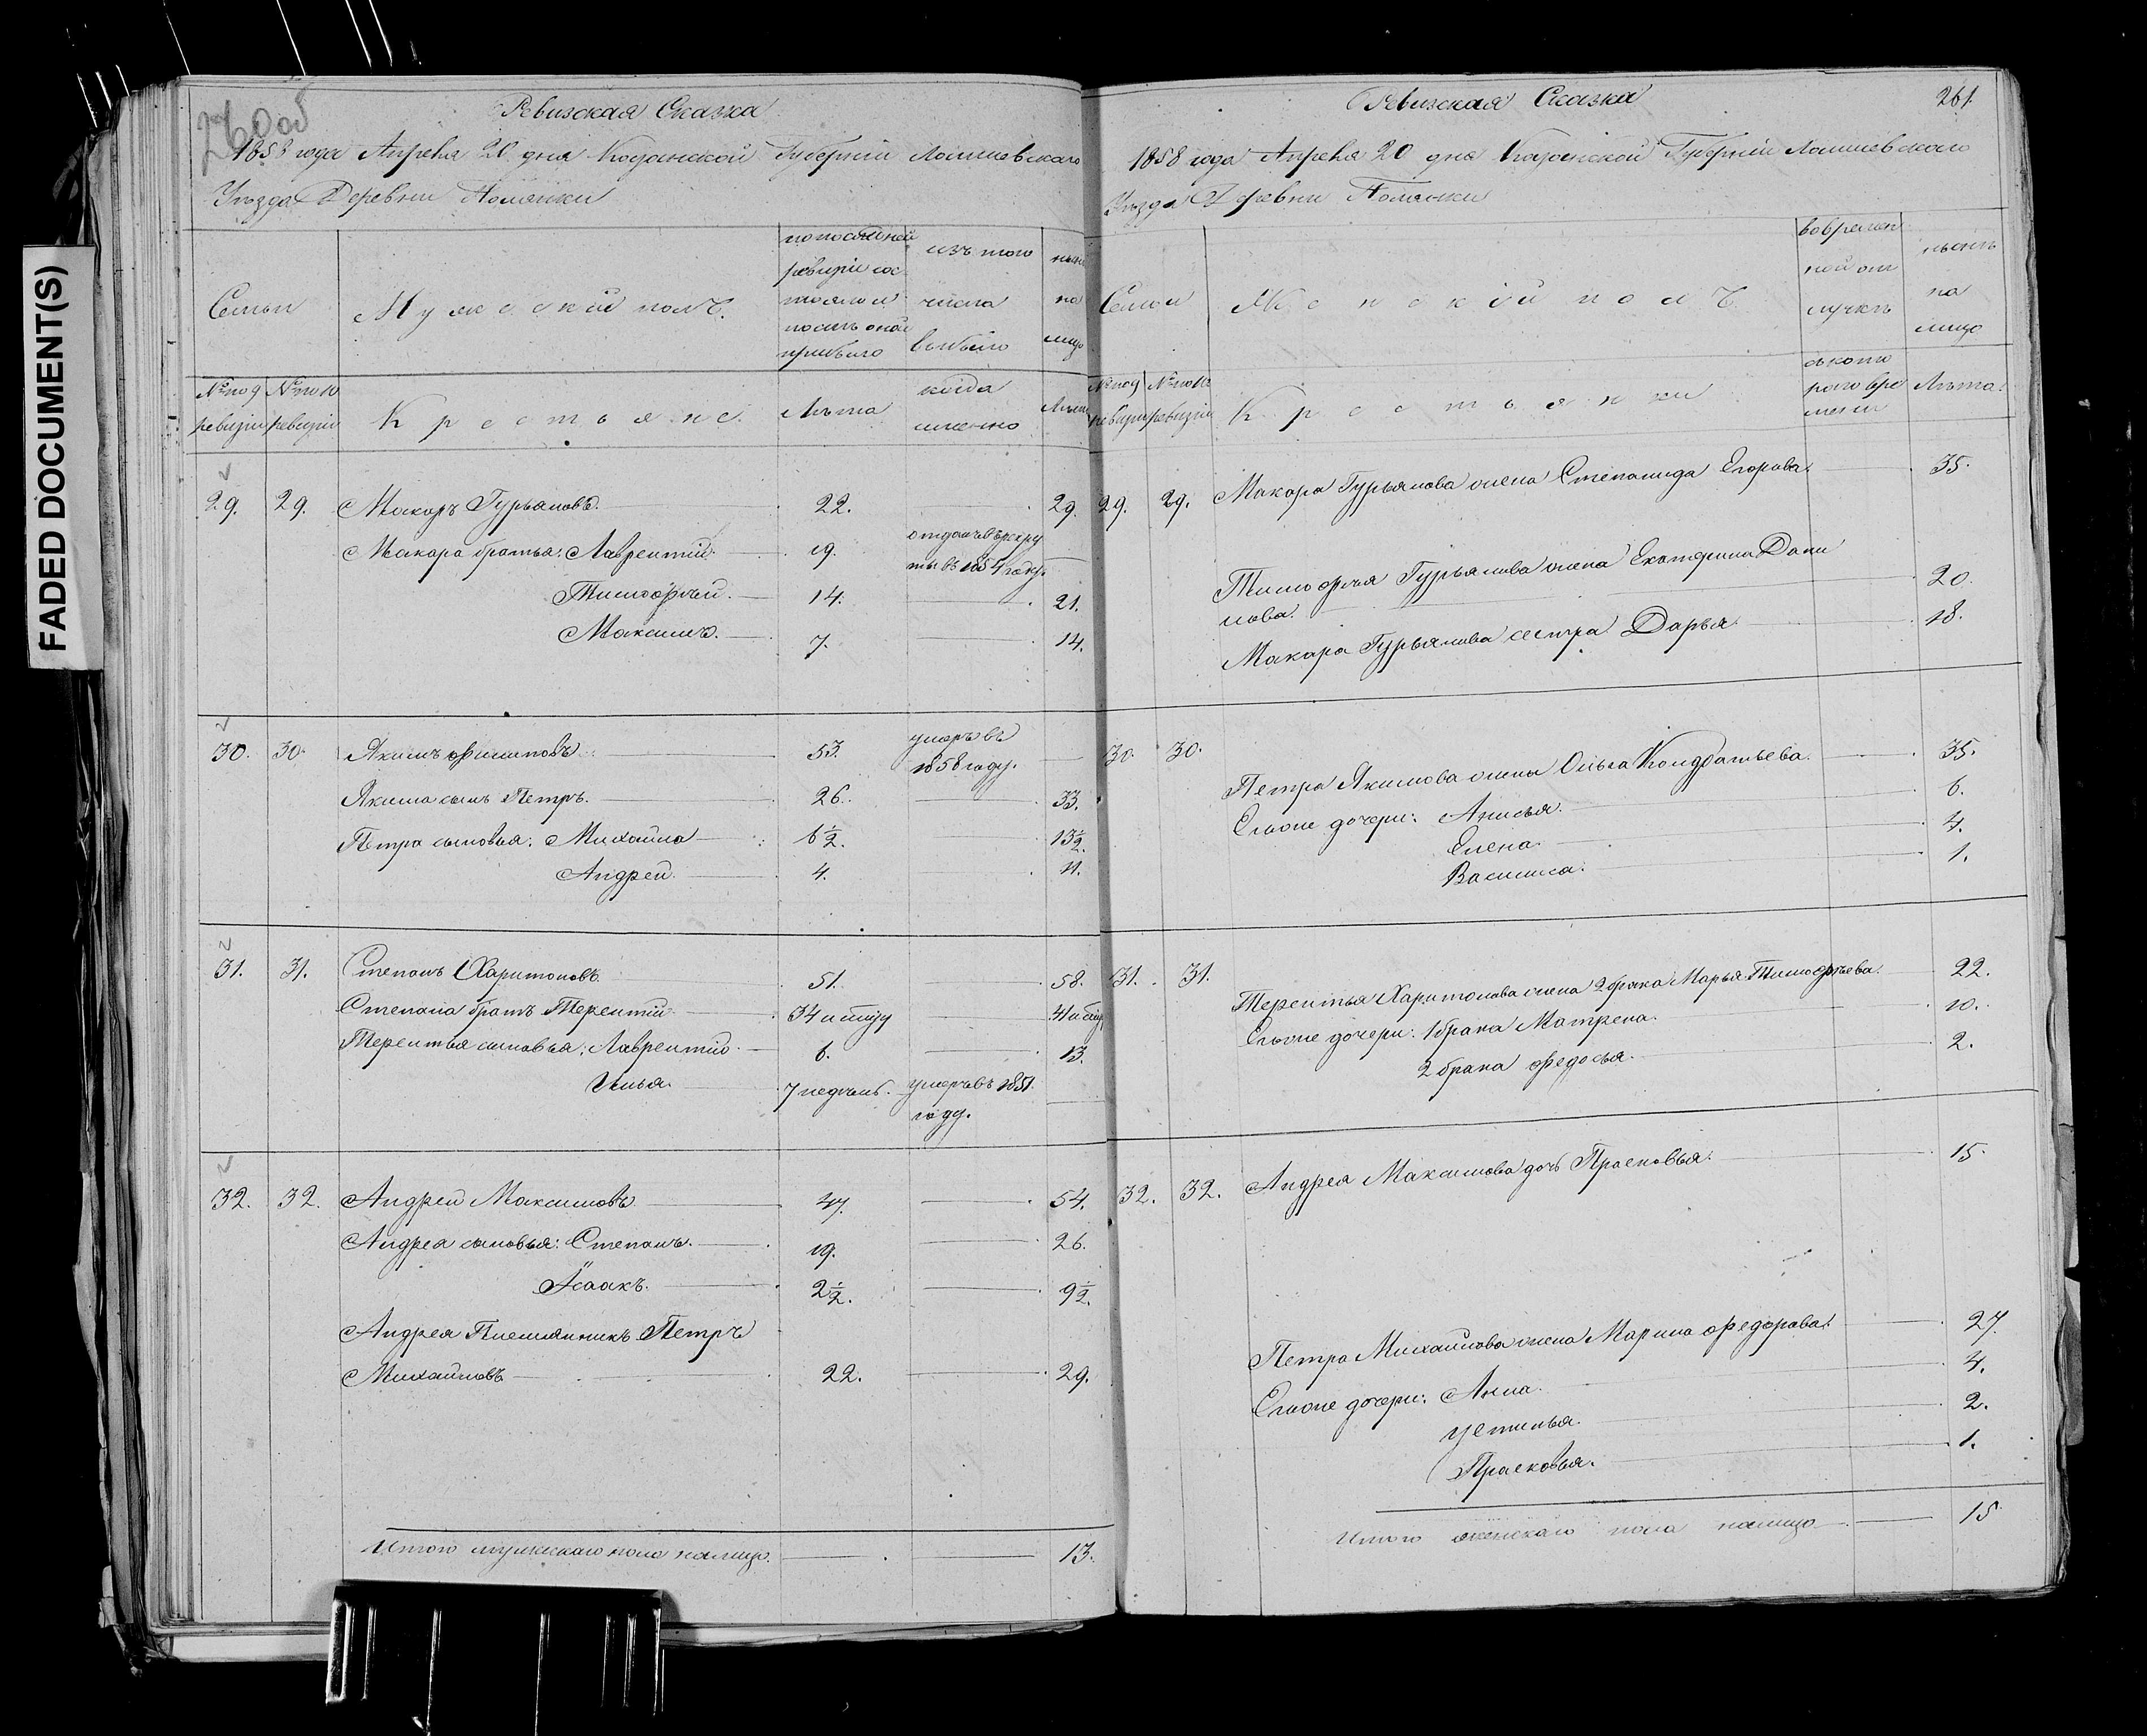 FADED DOCUMENT(S)
260 об
Ревизская Сказка
1858 года Апреля 20 дня Казанской Губерніи Лаишевского
Уѣзда Деревни Полянки
Семьи
Мужескій полъ.
по послѣдней
ревизіи сос
тояло и
послѣ оной
прибыло
изъ того
числа
выбыло
нынѣ
на
лицо
№ по 9
ревизіи
№ по 10
ревизіи
Крестьяне.
Лѣта
когда
именно
Лѣта
29. 29. Макаръ Гурьяновъ. 22. 29.
Макара братья: Лаврентій. 19. отданъ въ рекру
ты въ 1854 году.
Тимофѣй. 14. 21.
Максимъ. 7. 14.
30. 30. Якимъ Филиповъ. 53. умеръ въ
1858 году.
Якима сынъ Петръ. 26. 33.
Петра сыновья: Михайла 6½. 13½.
Андрей. 4. 11.
31. 31. Степанъ Харитоновъ. 51. 58.
Степана братъ Терентій. 34 41
Терентья сыновья: Лаврентій. 6. 13.
Илья. 7 недѣль. умеръ въ 1851
году.
32. 32. Андрей Максимовъ. 47. 54.
Андрея сыновья: Степанъ. 19. 26.
Исаакъ. 2½. 9½.
Андрея Племянникъ Петръ
Михайловъ 22. 29.
Итого мужескаго пола налицо. 13.
261.
Ревизская Сказка
1858 года Апреля 20 дня Казанской Губерніи Лаишевского
Уѣзда Деревни Полянки
Семьи
Женскій полъ.
во времен
ной от
лучкѣ
нынѣ
на
лицо
№ по 9
ревизіи
№ по 10
ревизіи
Крестьянки
съ кото
раго вре
мени
Лѣта.
29. 29. Макара Гурьянова жена Степанида Егорова. 35.
Тимофѣя Гурьянова жена Екатерина Дани
лова. 20.
Макара Гурьянова сестра Дарья 18.
30. 30. Петра Якимова жена Ольга Кондратьева. 35.
Егоже дочери: Анисья. 6.
Елена. 4.
Василиса. 1.
31. 31. Терентья Харитонова жена 2 брака Марья Тимофѣева. 22.
Егоже дочери: 1 брака Матрена. 10.
2 брака Федосья. 2.
32. 32. Андрея Максимова дочь Прасковья. 15.
Петра Михайлова жена Марина Федорова. 27.
Егоже дочери: Анна. 4.
Устинья. 2.
Прасковья. 1.
Итого женскаго пола налицо 15